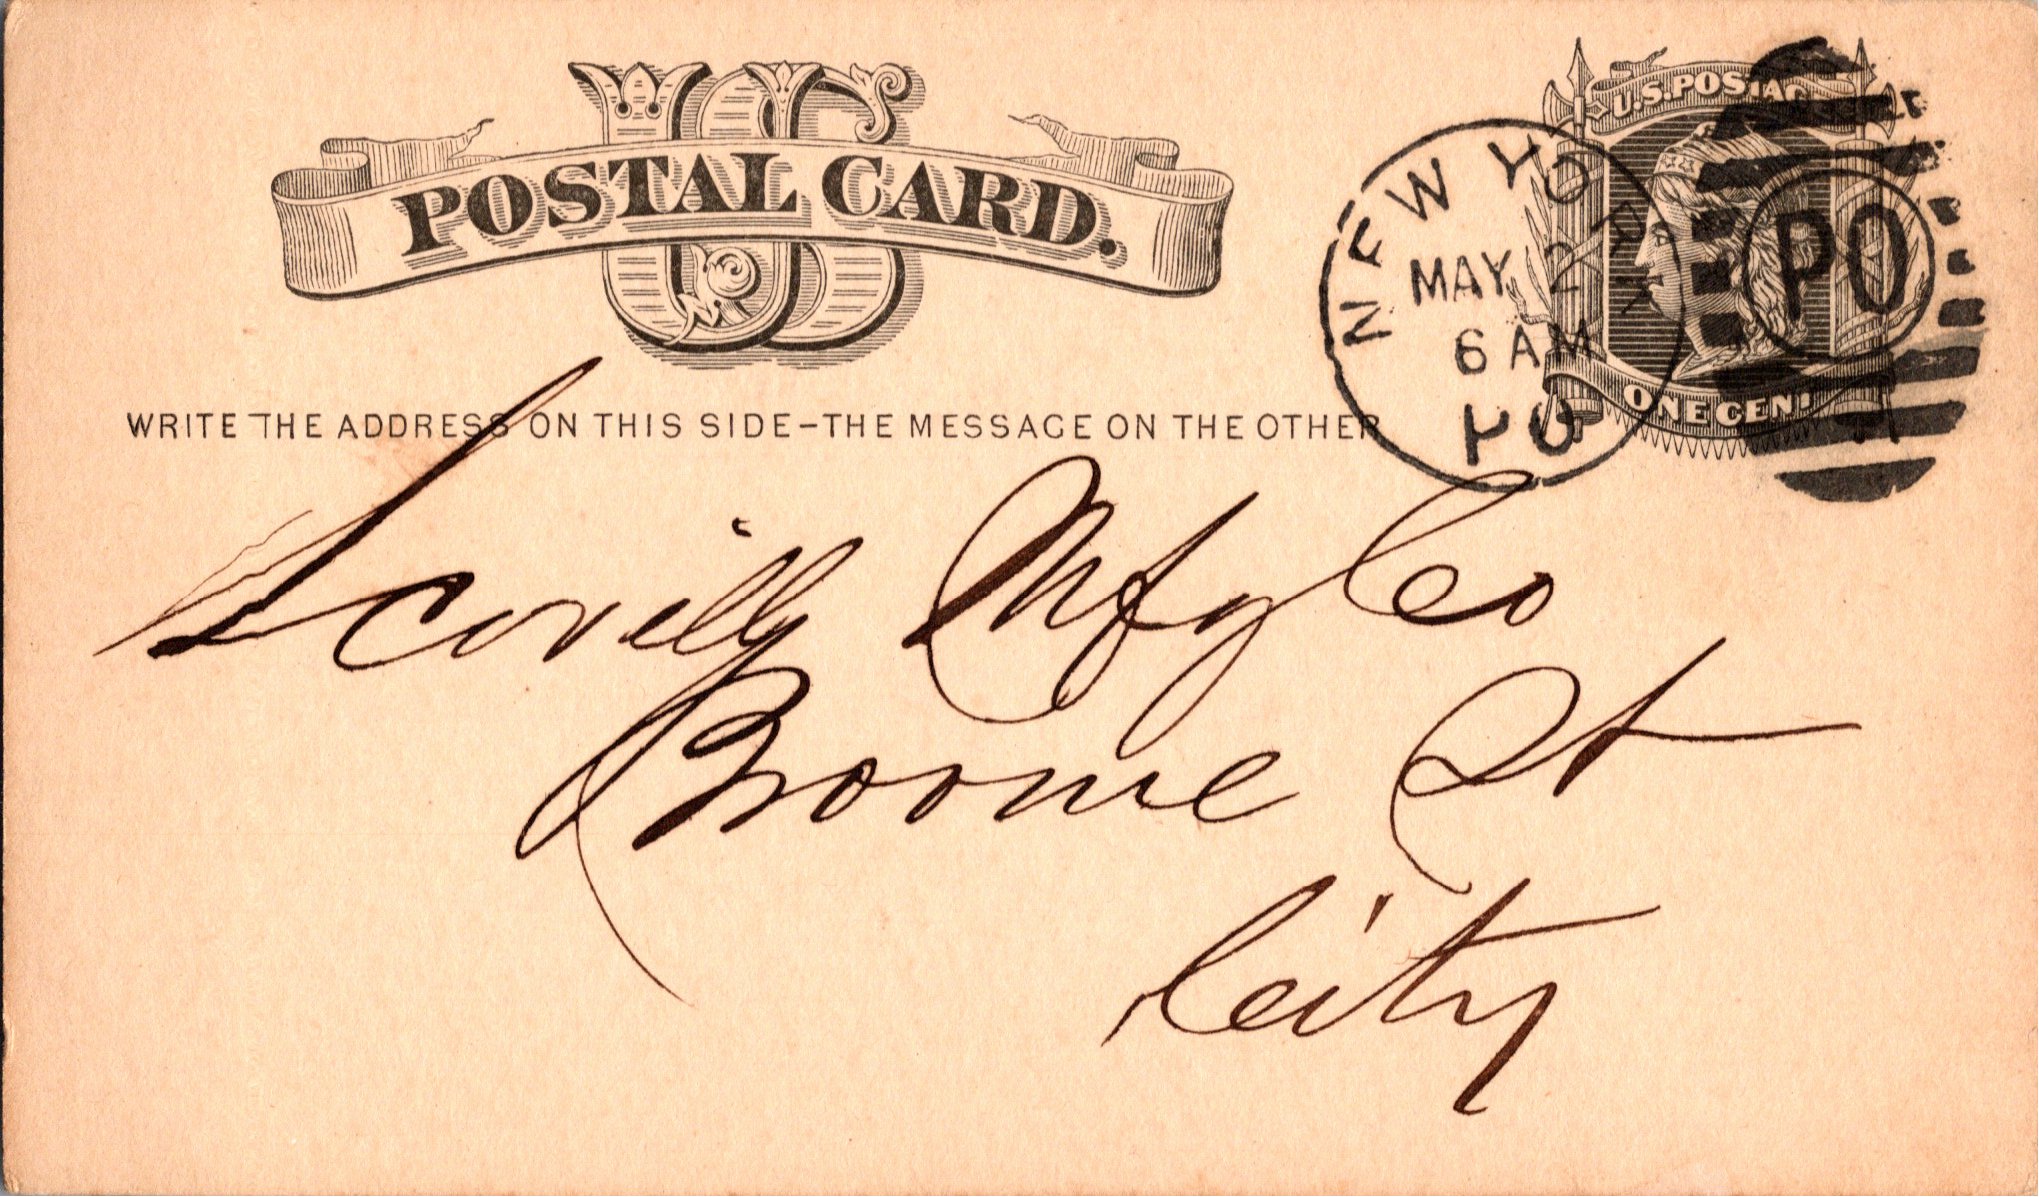 US
POSTAL CARD.
U.S. POSTAGE
ONE CENT
NEW YORK
MAY 2
6 AM
PO
WRITE THE ADDRESS ON THIS SIDE-THE MESSAGE ON THE OTHER
Scovilly Mfg Co
Broome St
City